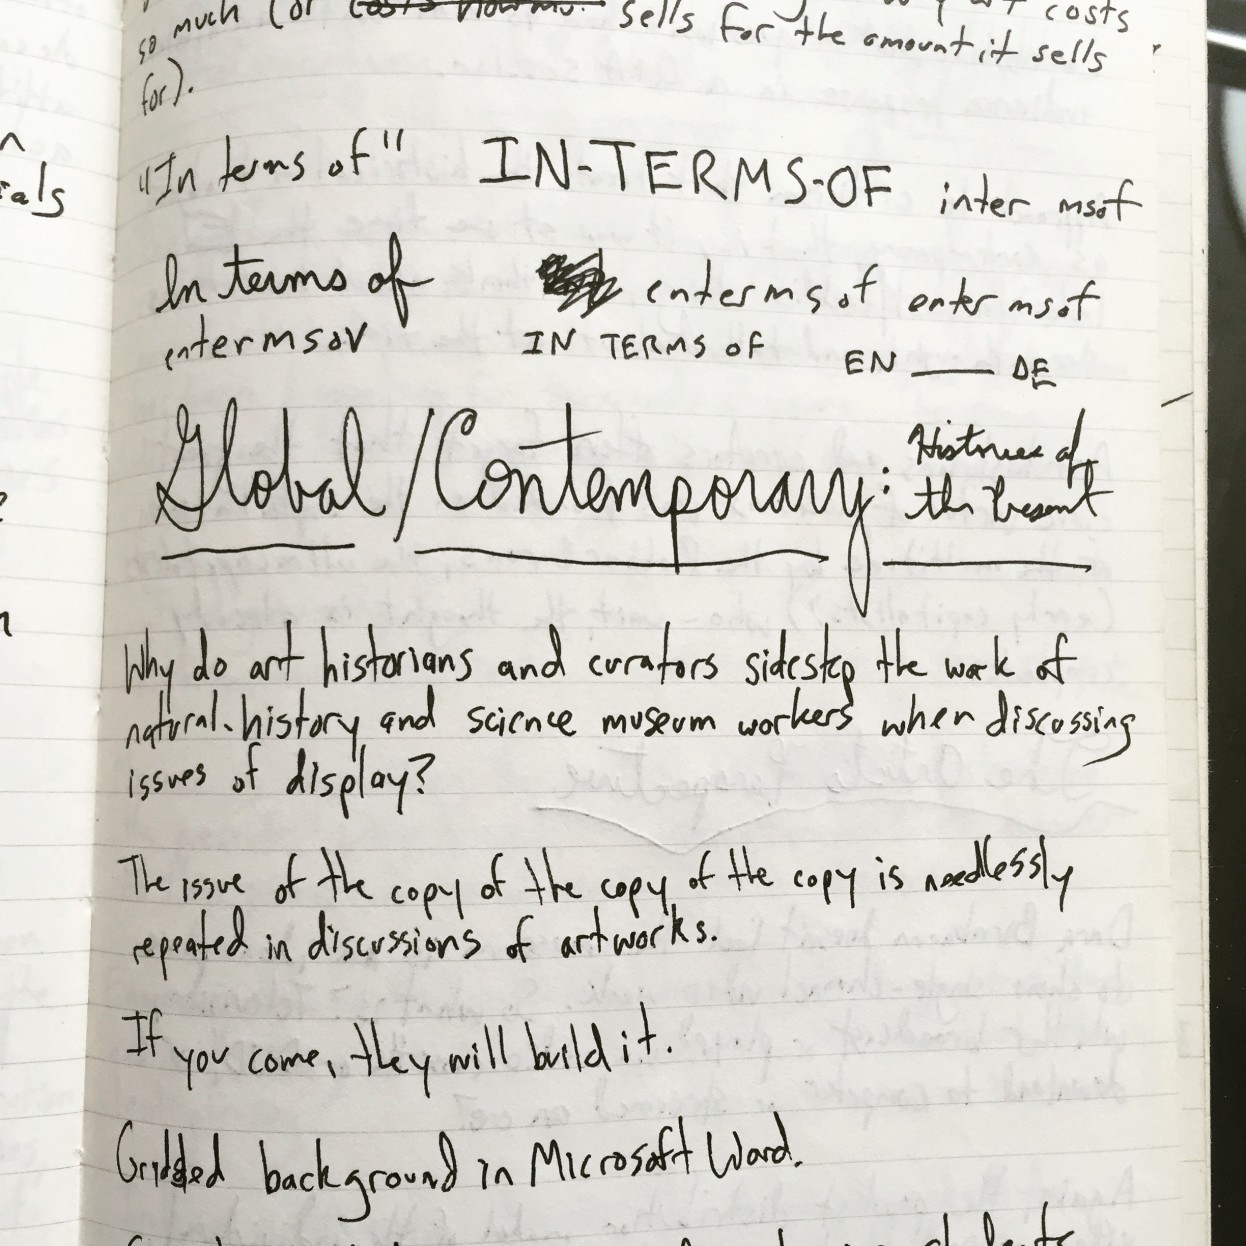 costs
so much (or sells for the amount it sells
for).
"In terms of" IN-TERMS-OF inter msof
In terms of entermsof enter msof
entermsov IN TERMS OF EN ___ DE
Global/Contemporary: Histories of
the Present
Why do art historians and curators sidestep the work of
natural-history and science museum workers when discussing
issues of display?
The issue of the copy of the copy of the copy is needlessly
repeated in discussions of artworks.
If you come, they will build it.
Gridded background in Microsoft Word.